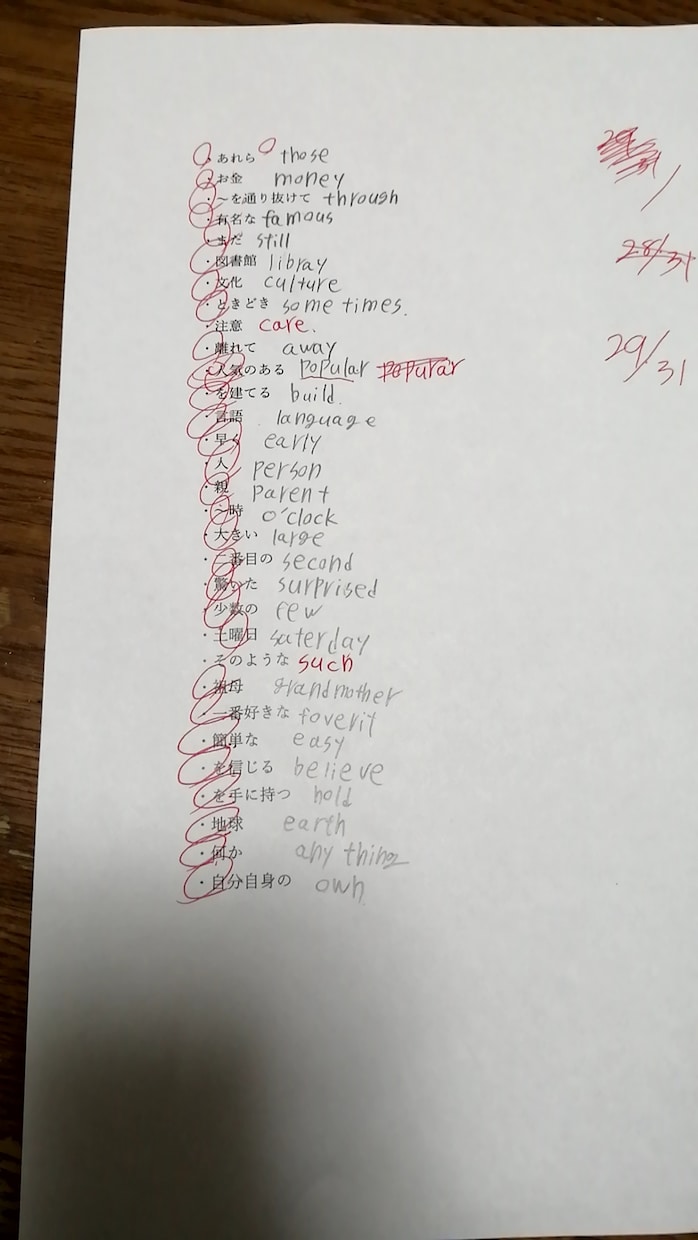 ・あれら those
・お金 money
・～を通り抜けて through
・有名な famous
・まだ still
・図書館 libray
・文化 culture
・ときどき some times.
・注意 care.
・離れて away
・人気のある popular popurar
・を建てる build.
・言語 language
・早く early
・人 person
・親 parent
・～時 o'clock
・大きい large
・二番目の second
・驚いた surprised
・少数の few
・土曜日 saterday
・そのような such
・祖母 grandmother
・一番好きな foverit
・簡単な easy
・を信じる believe
・を手に持つ hold
・地球 earth
・何か any thing
・自分自身の own
28/31
29/31